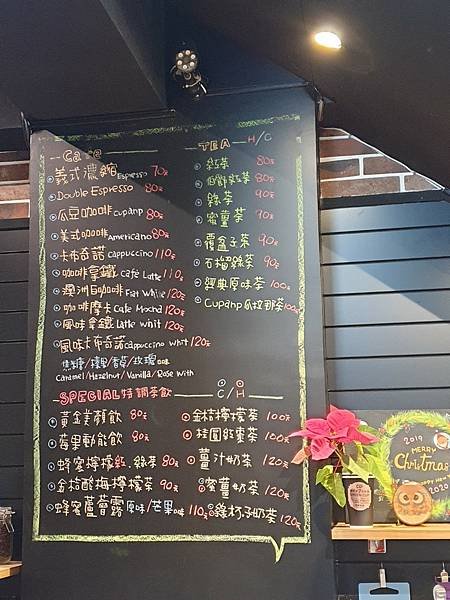 Cafe
義式濃縮 Espresso 70元
Double Espresso 80元
瓜豆咖啡 Cupanp 80元
美式咖啡 Americano 80元
卡布奇諾 Cappuccino 110元
咖啡拿鐵 Cafe Latte 110元
澳洲白咖啡 Flat White 120元
咖啡摩卡 Cafe Mocha 120元
風味拿鐵 Latte whit 120元
風味卡布奇諾 Cappuccino whit 120元
焦糖/榛果/香草/玫瑰
Caramel/Hazelnut/Vanilla/Rose with
TEA H/C
紅茶 80元
紅茶 80元
綠茶 90元
蜜薑茶 90元
覆盆子茶 90元
石榴綠茶 90元
經典原味茶 100元
Cupanp 瓜拉那茶 100元
SPECIAL特調茶飲 C/H
黃金美顏飲 80元
莓果動能飲 80元
蜂蜜檸檬紅.綠茶 80元
金桔酸梅檸檬茶 90元
蜂蜜蘆薈露 原味/芒果 口味 110元
金桔檸檬茶 100元
桂圓紅棗茶 100元
薑汁奶茶 120元
蜜薑奶茶 120元
綠杯子奶茶 120元
2019
MERRY
Christmas
HAPPY NEW
2020